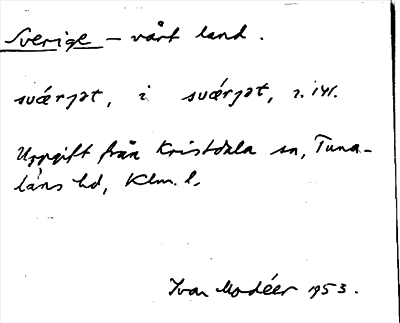 Sverige – vårt land.
svárjət, i svárjət,
Uppgift från Kristdala sn, Tuna-
läns hd, Klm. l.
Ivar Modéer 1953.